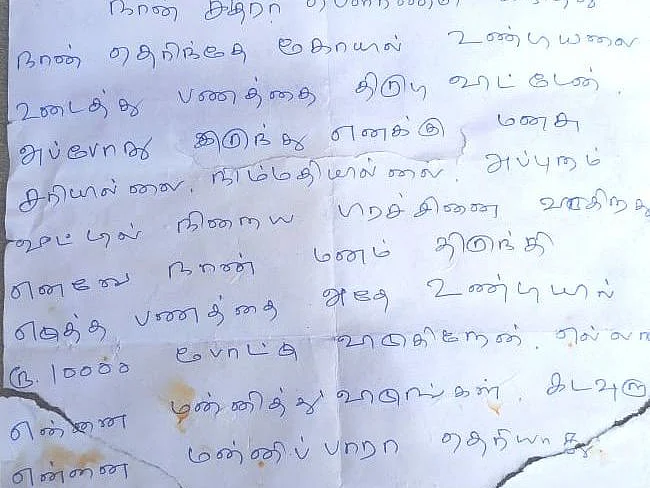 நான்
நான் தெரிந்தே கோயில் உண்டியலை
உடைத்து பணத்தை திருடி விட்டேன்.
அப்போது இருந்து எனக்கு மனசு
சரியில்லை. நிம்மதியில்லை. அப்புறம்
வீட்டில் நிறைய பிரச்சினை வருகிறது
எனவே நான் மனம் திருந்தி
எடுத்த பணத்தை அதே உண்டியில்
ரூ. 10000 போட்டு விடுகிறேன்.
என்னை மன்னித்து விடுங்கள்.
என்னை மன்னிப்பாரா தெரியாது.